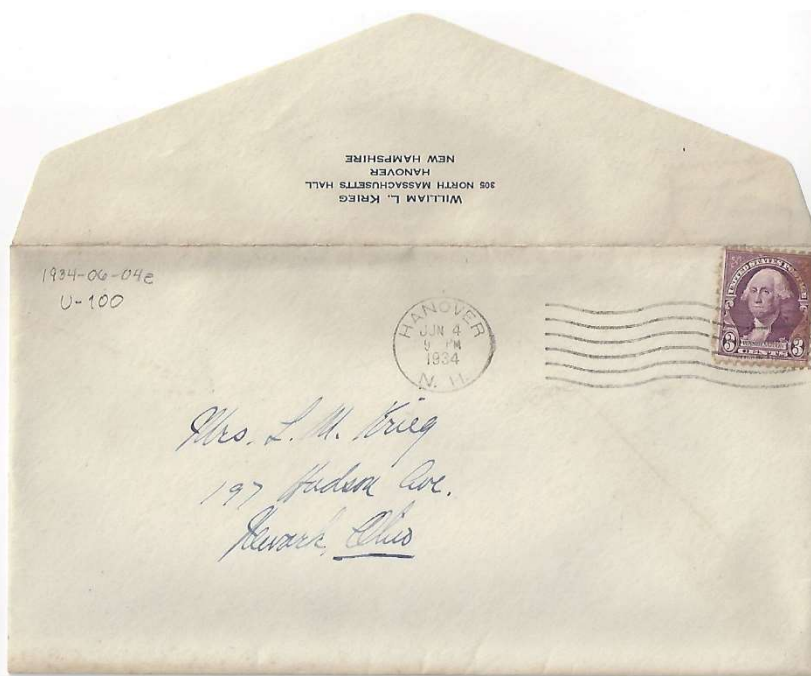 WILLIAM L. KRIEG
305 NORTH MASSACHUSETTS HALL
HANOVER
NEW HAMPSHIRE
1934-06-04e
U-100
HANOVER
JUN 4
9 PM
1934
N.H.
UNITED STATES POSTAGE
3 3
CENTS
Mrs. L. M. Krieg
197 Hudson Ave.
Newark, Ohio